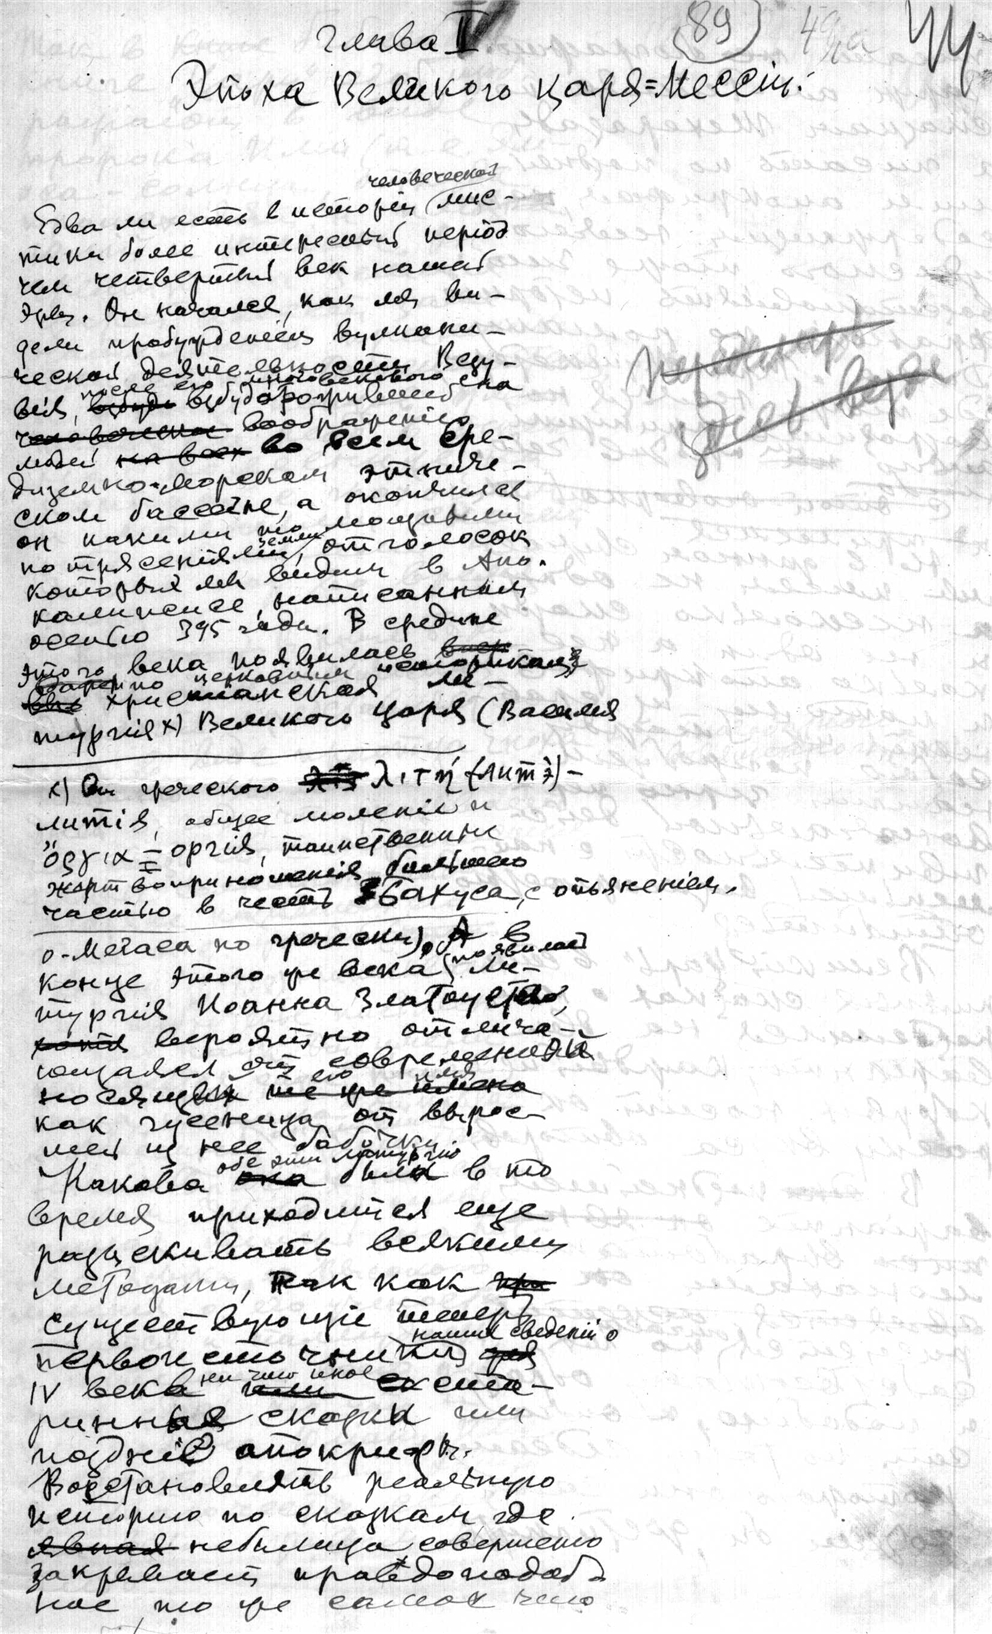 Глава II.
(89)
44
Эпоха Великого царя=Мессіи.
человеческой
Едва ли есть в исторіи мис-
тики более интересный період
чем четвертый век нашей
эры. Он начался, как мы ви-
дели пробужденіем вулкани-
ческой деятельности Везу-
вія, после его многовекового сна
взбудоражившей
воображеніе
людей на всех во всем Сре-
диземно-морском этниче-
ском бассейне, а окончился
он какими то мощными
потрясеніями земли, отголосок
которых мы видим в Апо-
калипсисе, написанном
осенью 395 года. В средине
этого века появилась
по церковным историкам
христианская ли-
тургія x) Великого царя (Василія
x) От греческого λιτή (литэ)-
литія, общее моленіе и
ὄργια = оргія, таинственныя
жертвоприношенія, большею
частью в честь Бахуса, с опьяненіем.
о-Мегаса по гречески), А в
конце этого же века появилась ли-
тургія Иоанна Златоуста,
хотя вероятно отлича-
ющаяся от современной
носящей его имя
как гусеница от вырос-
шей из нее бабочки.
обе эти литургіи
Какова она были в то
время приходится еще
разыскивать всякими
методами, так как
существующіе теперь
нашим сведеній о
первоисточники
IV века ни что иное
ринныя сказки или
поздніе апокрифы.
Возстановлять реальную
историю по сказкам, где
явная небылица совершенно
закрывает правдоподоб-
ное, то же самое что